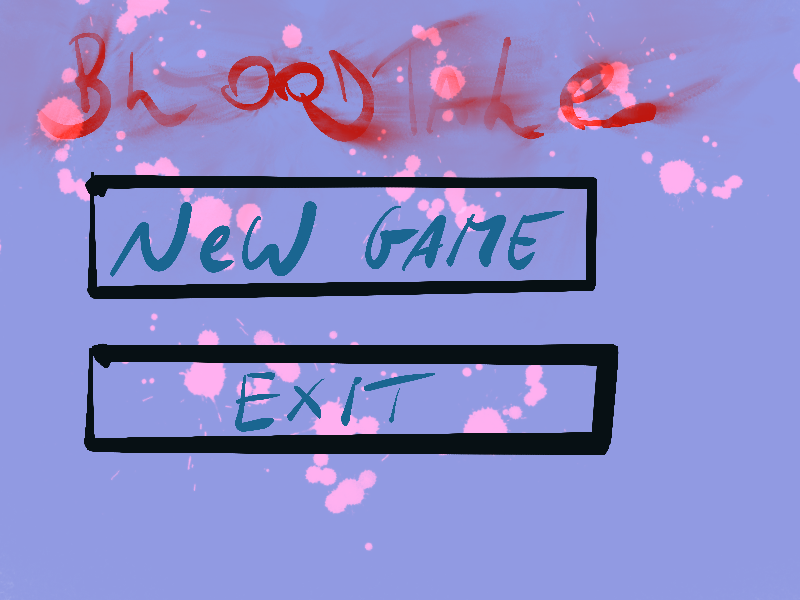 BLOODTaLe
NeW GAME
EXIT